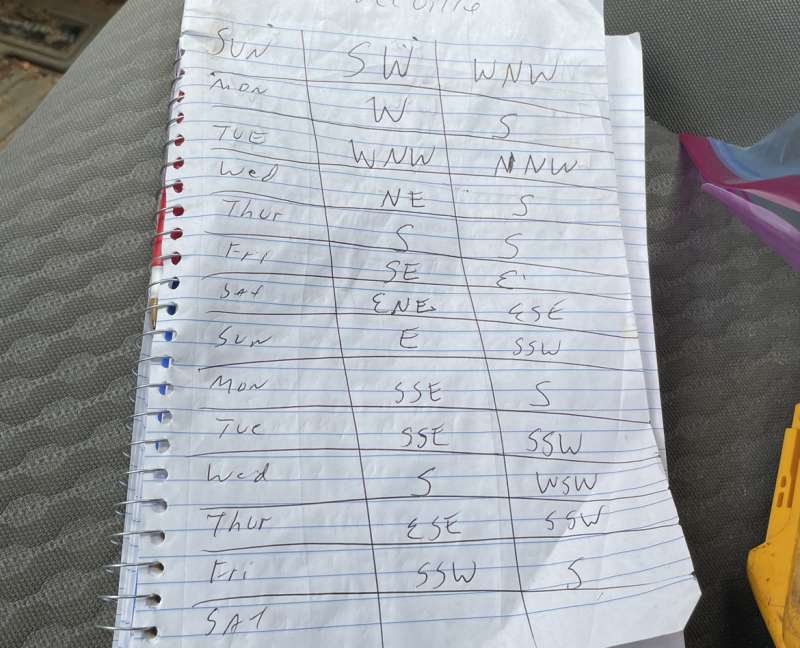 SUN SW WNW
MON W S
TUE WNW NNW
Wed NE S
Thur S S
Fri SE E
SAT ENE ESE
SUN E SSW
MON SSE S
Tue SSE SSW
Wed S WSW
Thur ESE SSW
Fri SSW S
SAT